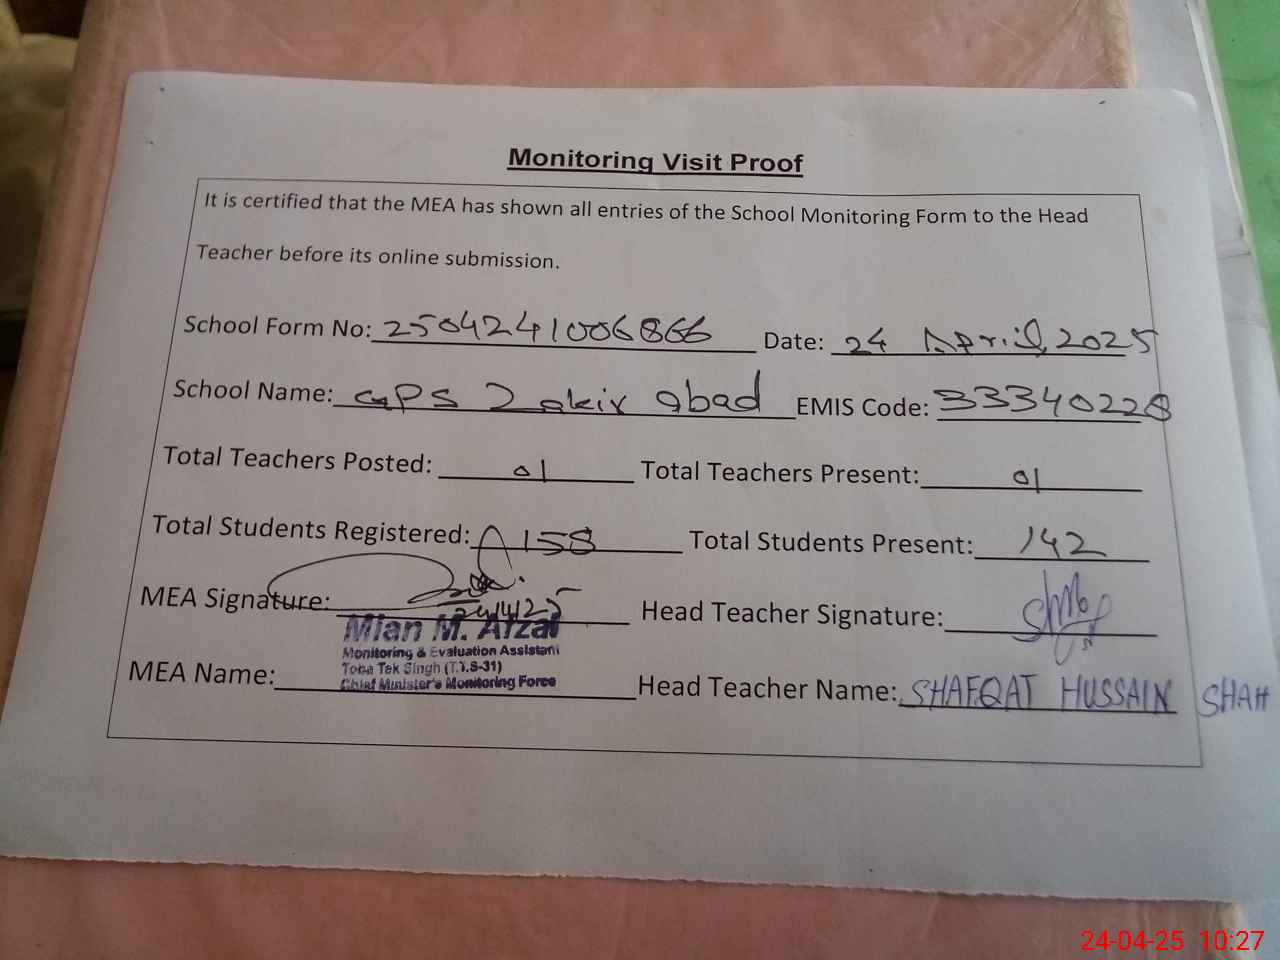 Monitoring Visit Proof
It is certified that the MEA has shown all entries of the School Monitoring Form to the Head
Teacher before its online submission.
School Form No: 2504241006866 Date: 24 April, 2025
School Name: GPS Zakir abad EMIS Code: 33340228
Total Teachers Posted: 01 Total Teachers Present: 01
Total Students Registered: 158 Total Students Present: 142
MEA Signature: 24/4/25 Head Teacher Signature:
Mian M. Afzal
Monitoring & Evaluation Assistant
Toba Tek Singh (T.T.S-31)
Chief Minister's Monitoring Force
MEA Name: Head Teacher Name: SHAFQAT HUSSAIN SHAH
24-04-25 10:27